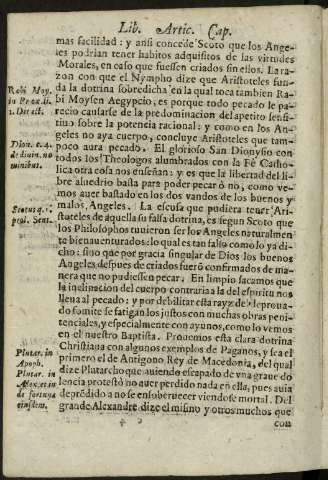 Lib. Artic. Cap.
mas facilidad: y ansi concede Scoto que los Ange-
les podrian tener habitos adquisitos de las virtudes
Morales, en caso que fuessen criados sin ellos. La ra-
zon con que el Nympho dize que Aristoteles fun-
da la dotrina sobredicha en la qual toca tambien Ra-
bi Moysen Aegypcio, es porque todo pecado le pa-
recio causarse de la predominacion del apetito sensi-
tiuo sobre la potencia racional: y como en los An-
geles no aya cuerpo, concluye Aristoteles que tam-
poco aura pecado. El glorioso San Dionysio con
todos los Theologos alumbrados con la Fè Catho-
lica otra cosa nos enseñan: y es que la libertad del li-
bre aluedrio basta para poder pecar ò no, como ve-
mos auer bastado en los dos vandos de los buenos y
malos Angeles. La escusa que pudiera tener Ari-
stoteles de aquella su falsa dotrina, es segun Scoto que
los Philosophos tuuieron ser los Angeles naturalmen-
te bienauenturados: lo qual es tan falso como lo ya di-
cho: sino que por gracia singular de Dios los buenos
Angeles despues de criados fuerõ confirmados de ma-
nera que no pudiessen pecar. En limpio sacamos que
la inclinacion del cuerpo contraria a la del espiritu nos
lleua al pecado: y por debilitar esta rayz de
somite se fatigan los justos con muchas obras peni-
tenciales, y especialmente con ayunos, como lo vemos
en el nuestro Baptista. Prouemos esta clara dotrina
Christiana con algunos exemplos de Paganos, y sea el
primero el de Antigono Rey de Macedonia, del qual
dize Plutarcho que auiendo escapado de vna graue do
lencia protestò no auer perdido nada en ella, pues auia
deprẽdido a no se ensoberuecer viendose mortal. Del
grande Alexandre dize el mismo y otros muchos que
con
Rabi Moy.
Dion. c. 4.
de diuin. no
minibus.
Scotus q. 1.
prol. Sent.
Plutar. in
Apoph.
Plutar. in
de fortuna
eiusdem.